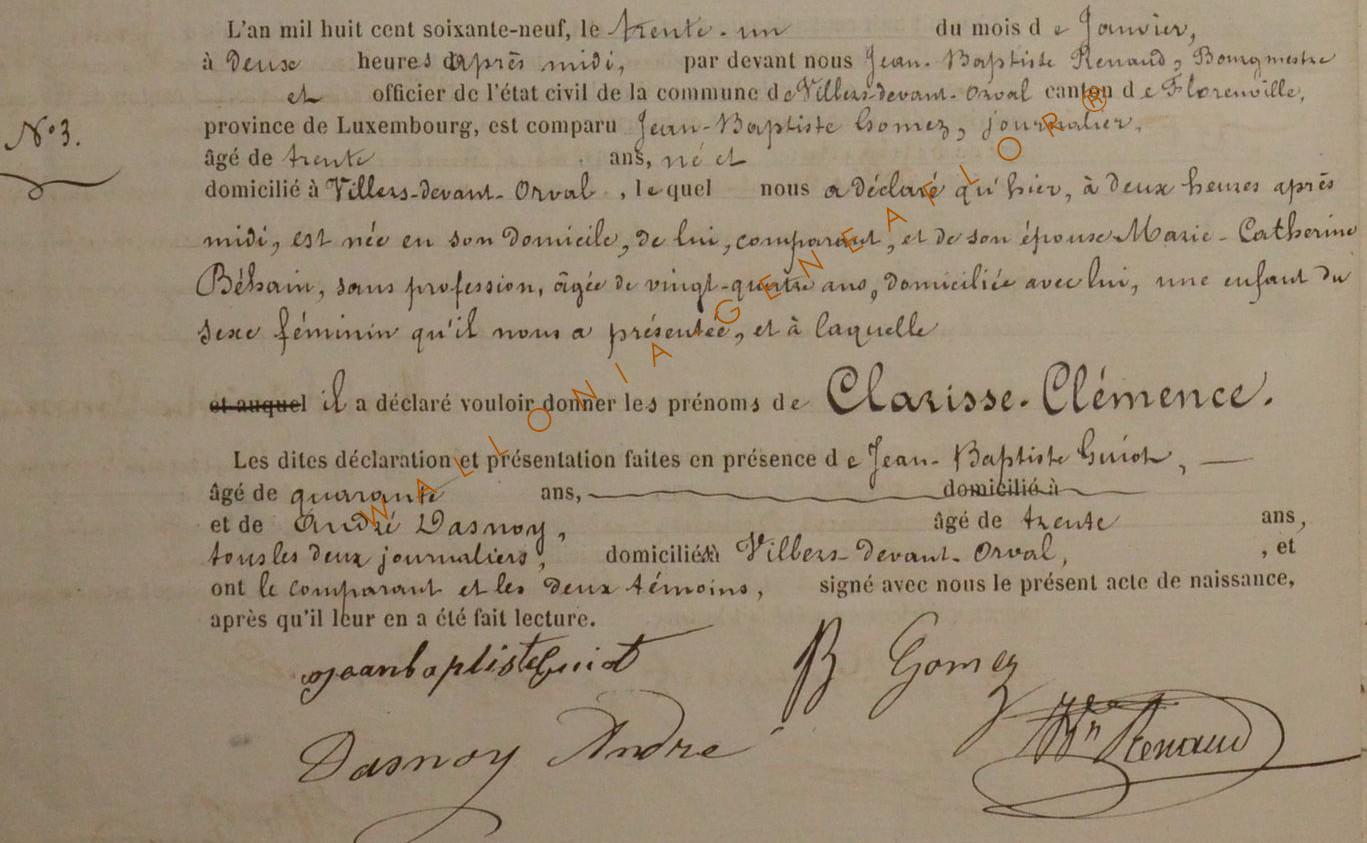 L'an mil huit cent soixante-neuf, le trente-un du mois de Janvier,
à Deux heures après midi, par devant nous Jean-Baptiste Renaud, Bourgmestre
et officier de l'état civil de la commune de Villers-devant-Orval canton de Florenville,
N° 3.
province de Luxembourg, est comparu Jean-Baptiste Gomez, journalier,
âgé de trente ans, né et
domicilié à Villers-devant-Orval, lequel nous a déclaré qu'hier, à deux heures après
midi, est née en son domicile, de lui, comparant, et de son épouse Marie-Catherine
Béhain, sans profession, âgée de vingt-quatre ans, domiciliée avec lui, une enfant du
sexe féminin qu'il nous a présentée, et à laquelle
et auquel il a déclaré vouloir donner les prénoms de Clarisse-Clémence.
Les dites déclaration et présentation faites en présence de Jean-Baptiste Guiot,
âgé de quarante ans, domicilié à
et de André Dasnoy, âgé de trente ans,
tous les deux journaliers, domiciliés à Villers-devant-Orval, , et
ont le comparant et les deux témoins, signé avec nous le présent acte de naissance,
après qu'il leur en a été fait lecture.
jeanbaptisteGuiot B Gomez
Dasnoy André Renaud
WALLONIA GENEAFLOR ®